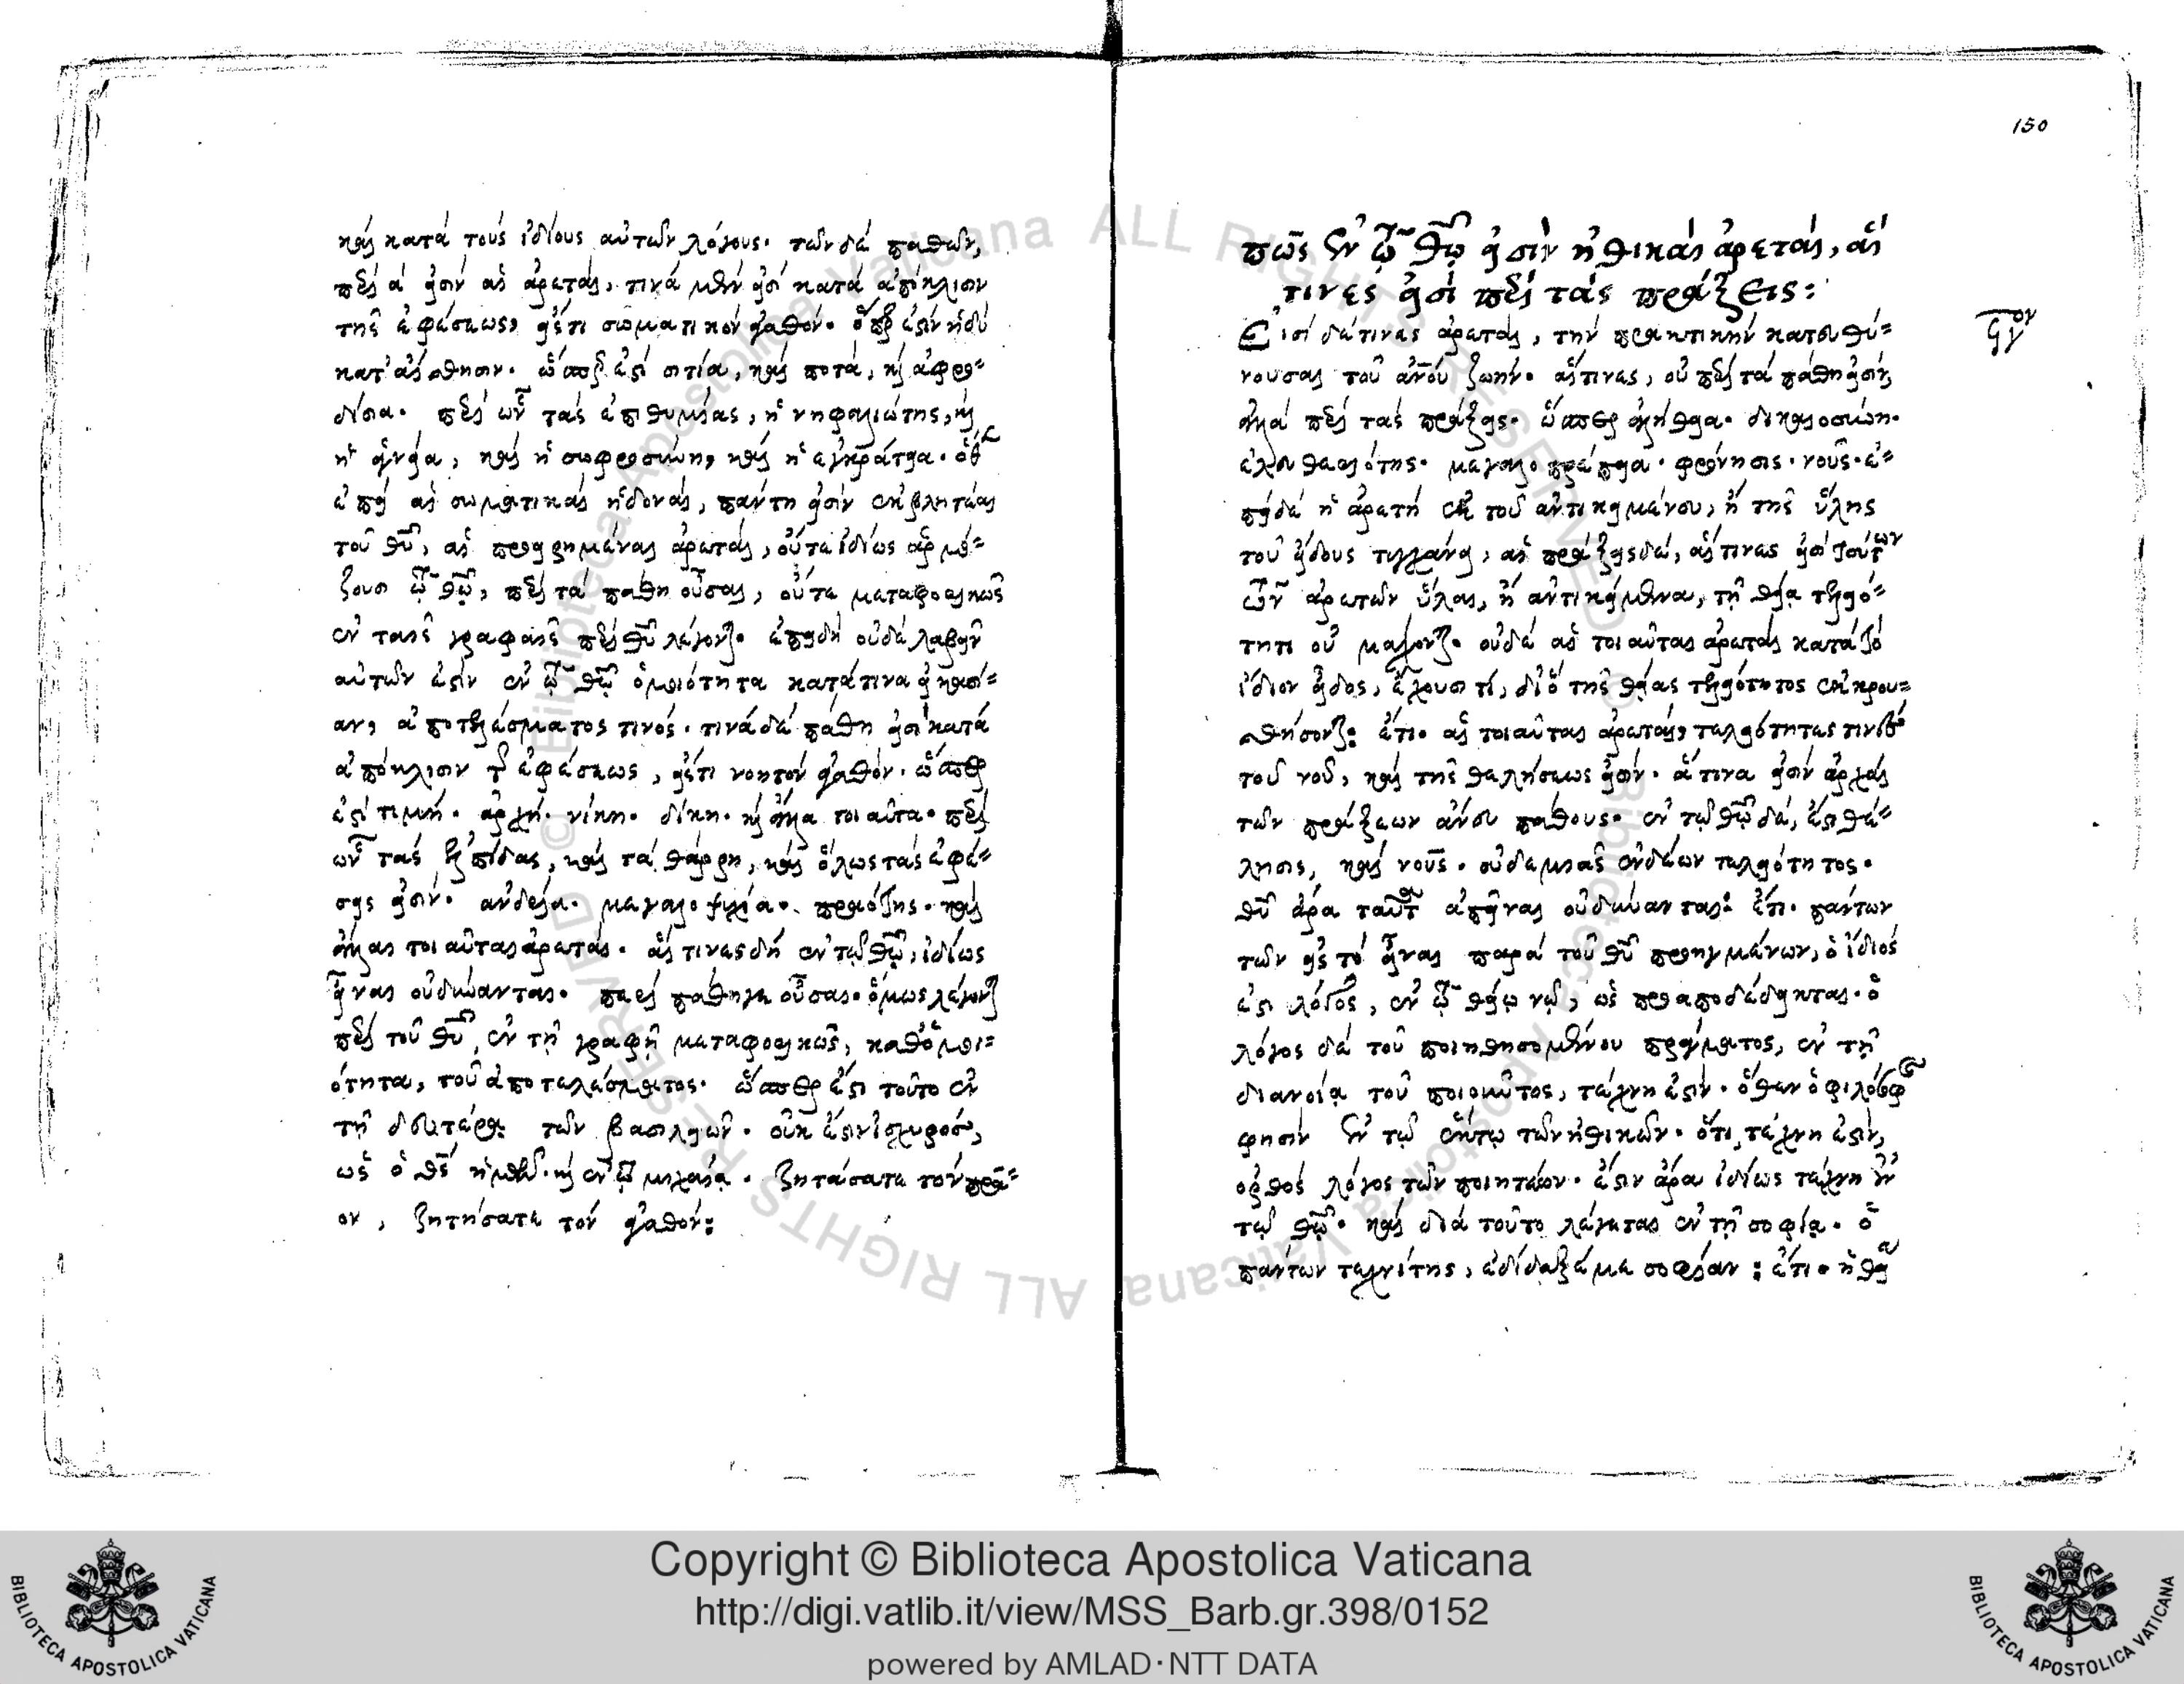 καὶ κατὰ τοὺς ἰδίους αὐτῶν λόγους. τῶν δὲ παθῶν,
περὶ ἃ εἰσὶν αἱ ἀρεταὶ, τινὰ μέν εἰσι κατὰ ἀπόκλισιν
τῆς ἐφέσεως, εἰς τι σωματικὸν ἀγαθόν. ὅπερ ἐστὶν ἡδὺ
κατ' αἴσθησιν. ὥσπερ ἐστὶ σιτία, καὶ ποτὰ, καὶ ἀφρο-
δίσια. περὶ ὧν τὰς ἐπιθυμίας, ἡ νηφαλιότης, καὶ
ἡ ἁγνεία, καὶ ἡ σωφροσύνη, καὶ ἡ ἐγκράτεια. ὅθεν
ἐπεὶ αἱ σωματικαὶ ἡδοναὶ, πάντη εἰσὶν ἐκβλητέαι
τοῦ θῦ, αἱ προειρημέναι ἀρεταὶ, οὔτε ἰδίως ἁρμό-
ζουσι τῶ θῶ, περὶ τὰ πάθη οὖσαι, οὔτε μεταφορικῶς
ἐν ταῖς γραφαῖς περὶ θῦ λέγονται. ἐπειδὴ οὐδὲ λαβεῖν
αὐτῶν ἐστὶν ἐν τῶ θῶ ὁμοιότητα κατά τινα
ἀποτελέσματος τινός. τινὰ δὲ πάθη εἰσὶ κατὰ
ἀπόκλισιν τῆς ἐφέσεως, εἰς τι νοητὸν ἀγαθόν. ὥσπερ
ἐστὶ τιμή. ἀρχή. νίκη. δίκη. καὶ ἄλλα τοιαῦτα. περὶ
ὧν τὰς ἐλπίδας, καὶ τὰ θάρρη, καὶ ὅλως τὰς ἐφέ-
σεις εἰσὶν. ἀνδρεία. μεγαλοψυχία. πραότης. καὶ
ἄλλαι τοιαῦται ἀρεταί. αἵ τινες δὴ ἐν τῷ θῶ, ἰδίως
εἶναι οὐ δύνανται. περὶ πάθη γὰρ οὖσαι. ὅμως λέγονται
περὶ τοῦ θῦ, ἐν τῇ γραφῇ μεταφορικῶς, καθ' ὁμοι-
ότητα, τοῦ ἀποτελέσματος. ὥσπερ ἐστὶ τοῦτο ἐν
τῇ δευτέρᾳ τῶν βασιλειῶν. οὐκ ἔστιν ἰσχυρὸς,
ὡς ὁ θς ἡμῶν. καὶ ἐν τῶ μιχαίᾳ. ζητήσατε τὸν πρᾷ-
ον, ζητήσατε τὸν ἀγαθόν:
150
πῶς ἐν τῶ θῶ εἰσὶν ἠθικαὶ ἀρεταὶ, αἵ
τινες εἰσὶ περὶ τὰς πράξεις:
Εἰσὶ δέ τινες ἀρεταὶ, τὴν πρακτικὴν κατευθύ-
νουσαι τοῦ ἀνου ζωήν. αἵ τινες, οὐ περὶ τὰ πάθη εἰσὶν,
ἀλλὰ περὶ τὰς πράξεις. ὥσπερ ἀλήθεια. δικαιοσύνη.
ἐλευθεριότης. μεγαλοπρέπεια. φρόνησις. νοῦς. ἐ-
πεὶ δὲ ἡ ἀρετὴ ἐκ τοῦ ἀντικειμένου, ἢ τῆς ὕλης
τοῦ εἴδους τυγχάνει, αἱ πράξεις δὲ, αἵ τινες εἰσὶ τούτων
τῶν ἀρετῶν ὗλαι, ἢ ἀντικείμενα, τῇ θείᾳ τελειό-
τητι οὐ μάχονται. οὐδὲ αἱ τοιαῦται ἀρεταὶ κατὰ τὸ
ἴδιον εἶδος, ἔχουσί τι, δι' ὃ τῆς θείας τελειότητος ἐκκρου-
σθήσονται: ἔτι. αἱ τοιαῦται ἀρεταὶ, τελειότητές τινες
τοῦ νοῦ, καὶ τῆς θελήσεως εἰσίν. ἅτινα εἰσὶν ἀρχαὶ
τῶν πράξεων ἄνευ πάθους. ἐν τῷ θῶ δὲ, ἔστι θέ-
λησις, καὶ νοῦς. οὐδεμιᾶς ἐνδέων τελειότητος.
θῦ ἄρα ταῦτα ἀπεῖναι οὐ δύνανται: ἔτι. πάντων
τῶν εἰς τὸ εἶναι παρὰ τοῦ θῦ προηγμένων, ὁ ἴδιος
ἐστὶ λόγος, ἐν τῶ θείῳ νῷ, ὡς προαποδέδεικται. ὁ
λόγος δὲ τοῦ ποιηθησομένου πράγματος, ἐν τῇ
διανοίᾳ τοῦ ποιοῦντος, τέχνη ἐστίν. ὅθεν ὁ φιλόσοφος
φησὶν ἐν τῷ ἕκτῳ τῶν ἠθικῶν. ὅτι τέχνη ἐστὶν,
ὀρθὸς λόγος τῶν ποιητέων. ἔστιν ἄρα ἰδίως τέχνη ἐν
τῷ θῶ. καὶ διὰ τοῦτο λέγεται ἐν τῇ σοφίᾳ. ὁ
πάντων τεχνίτης, ἐδίδαξέ με σοφίαν: ἔτι. ἡ θεία